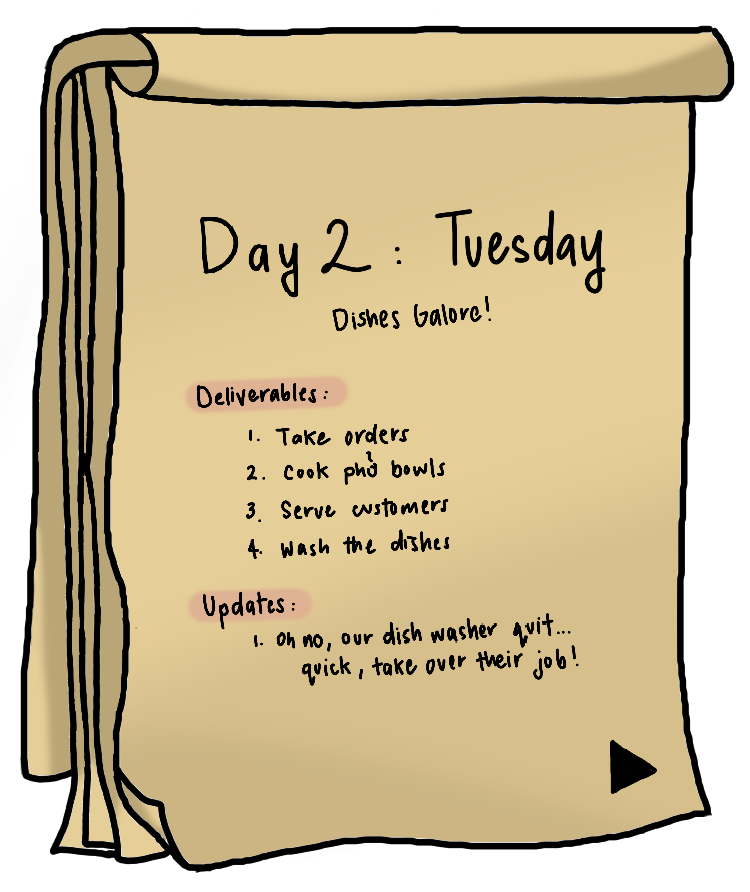 Day 2 : Tuesday
Dishes Galore!
Deliverables:
1. Take orders
2. Cook phở bowls
3. Serve customers
4. Wash the dishes
Updates:
1. Oh no, our dish washer quit...
quick, take over their job!